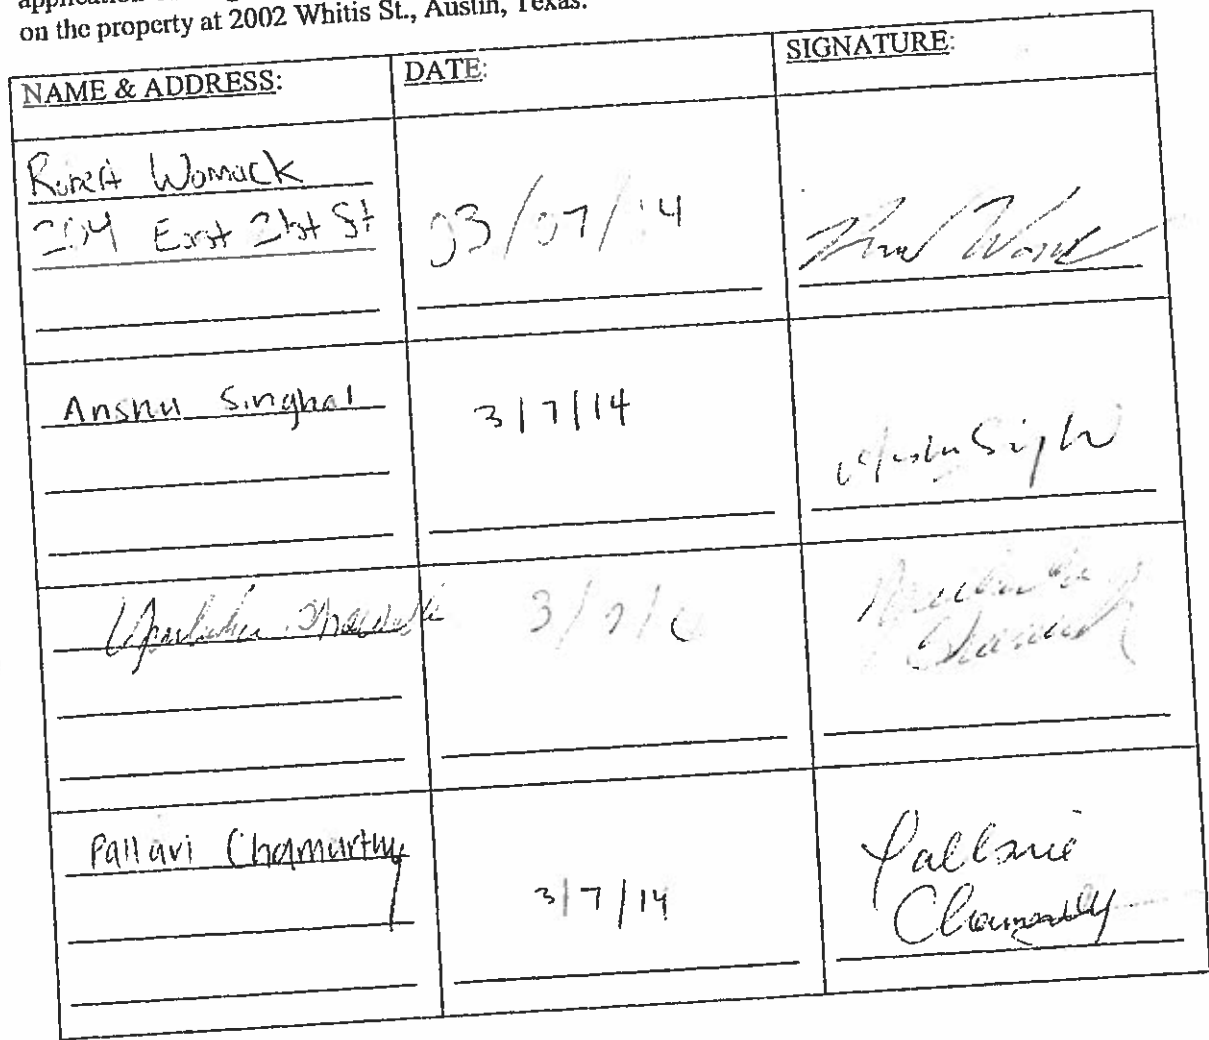 on the property at 2002 Whitis St., Austin, Texas.
NAME & ADDRESS:
DATE:
SIGNATURE:
Robert Womack
204 East 21st St
03/07/14
Anshu Singhal
3/7/14
3/7/
Pallavi Chamarthy
3/7/14
Pallavi
Chamarthy